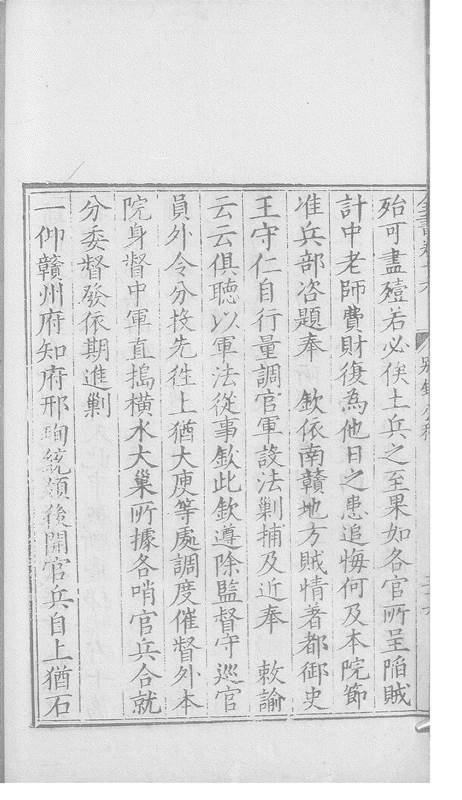 殆可盡殪若必俟土兵之至果如各官所呈陷賊
計中老師費財復為他日之患追悔何及本院節
准兵部咨題奉　欽依南贛地方賊情著都御史
王守仁自行量調官軍設法剿捕及近奉　敕諭
云云俱聽以軍法從事欽此欽遵除監督守巡官
員外令分投先徃上猶大庾等處調度催督外本
院身督中軍直搗橫水大巢所據各哨官兵合就
分委督發依期進剿
一仰贛州府知府邢珣統領後開官兵自上猶石